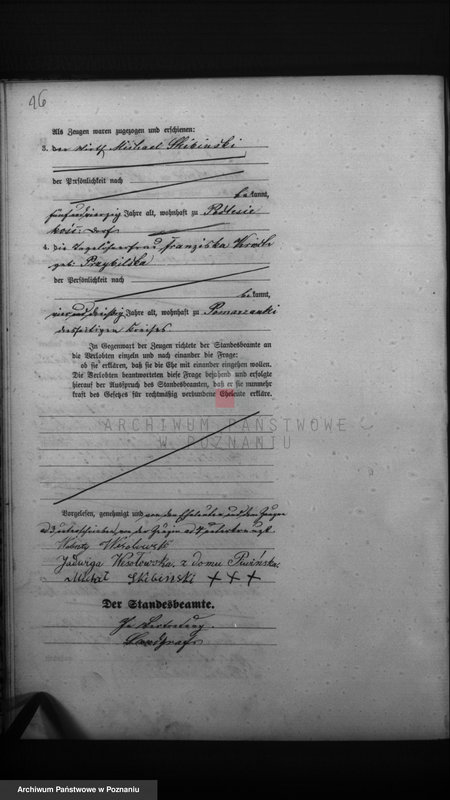 16
Als Zeugen waren zugezogen und erschienen:
3. der Wirth Michael Skibinski
der Persönlichkeit nach
bekannt,
fünfundvierzig Jahre alt, wohnhaft zu Podlesie
kosc: Dorf
4. die Tagelöhnerfrau Franziska
geb: Przybilska
der Persönlichkeit nach
bekannt,
vierunddreißig Jahre alt, wohnhaft zu Pomarzanki
diesseitigen Kreises.
In Gegenwart der Zeugen richtete der Standesbeamte an
die Verlobten einzeln und nach einander die Frage:
ob sie erklären, daß sie die Ehe mit einander eingehen wollen.
Die Verlobten beantworteten diese Frage bejahend und erfolgte
hierauf der Ausspruch des Standesbeamten, daß er sie nunmehr
kraft des Gesetzes für rechtmäßig verbundene Eheleute erkläre.
ARCHIWUM PAŃSTWOWE
W POZNANIU
Vorgelesen, genehmigt und von den Eheleuten und dem Zeugen
ad 3 unterschrieben, von der Zeugin ad 4 unterkreuzt
Wesołowski
Jadwiga Wesołowska z domu
Michał Skibiński +++
Der Standesbeamte.
In Vertretung.
Landgraf
Archiwum Państwowe w Poznaniu